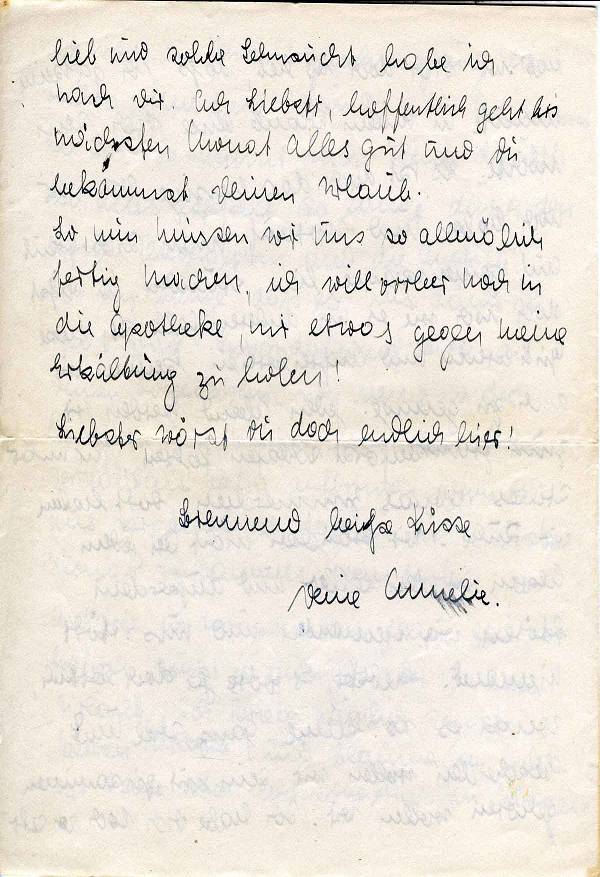 lieb und solche Sehnsucht habe ich
nach dir. Ach Liebster, hoffentlich geht bis
nächsten Monat alles gut und du
bekommst deinen Urlaub.
So, nun müssen wir uns so allmälich
fertig machen, ich will vorher noch in
die Apotheke, mir etwas gegen meine
Erkältung zu holen!
Liebster wärst du doch endlich hier!
Brennend heiße Küsse
deine Annelie.